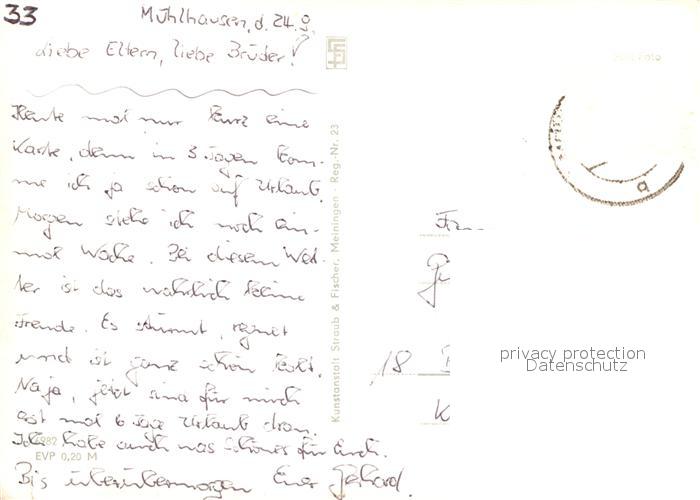 33
Mühlhausen, d. 24.9.
Liebe Eltern, liebe Brüder!
Heute mal nur kurz eine
Karte, denn in 3 Tagen kom-
me ich ja schon auf Urlaub.
Morgen stehe ich noch ein-
mal Wache. Bei diesem Wet-
ter ist das wahrlich keine
Freude. Es stürmt, regnet
und ist ganz schön kalt.
Naja, jetzt sind für mich
erst mal 6 Tage Urlaub dran.
Ich habe auch was schönes für Euch.
Bis überübermorgen Euer Gerhard.
EVP 0,20 M
Kunstanstalt Straub & Fischer, Meiningen · Reg.-Nr. 23
Foto
a
18
K
privacy protection
Datenschutz